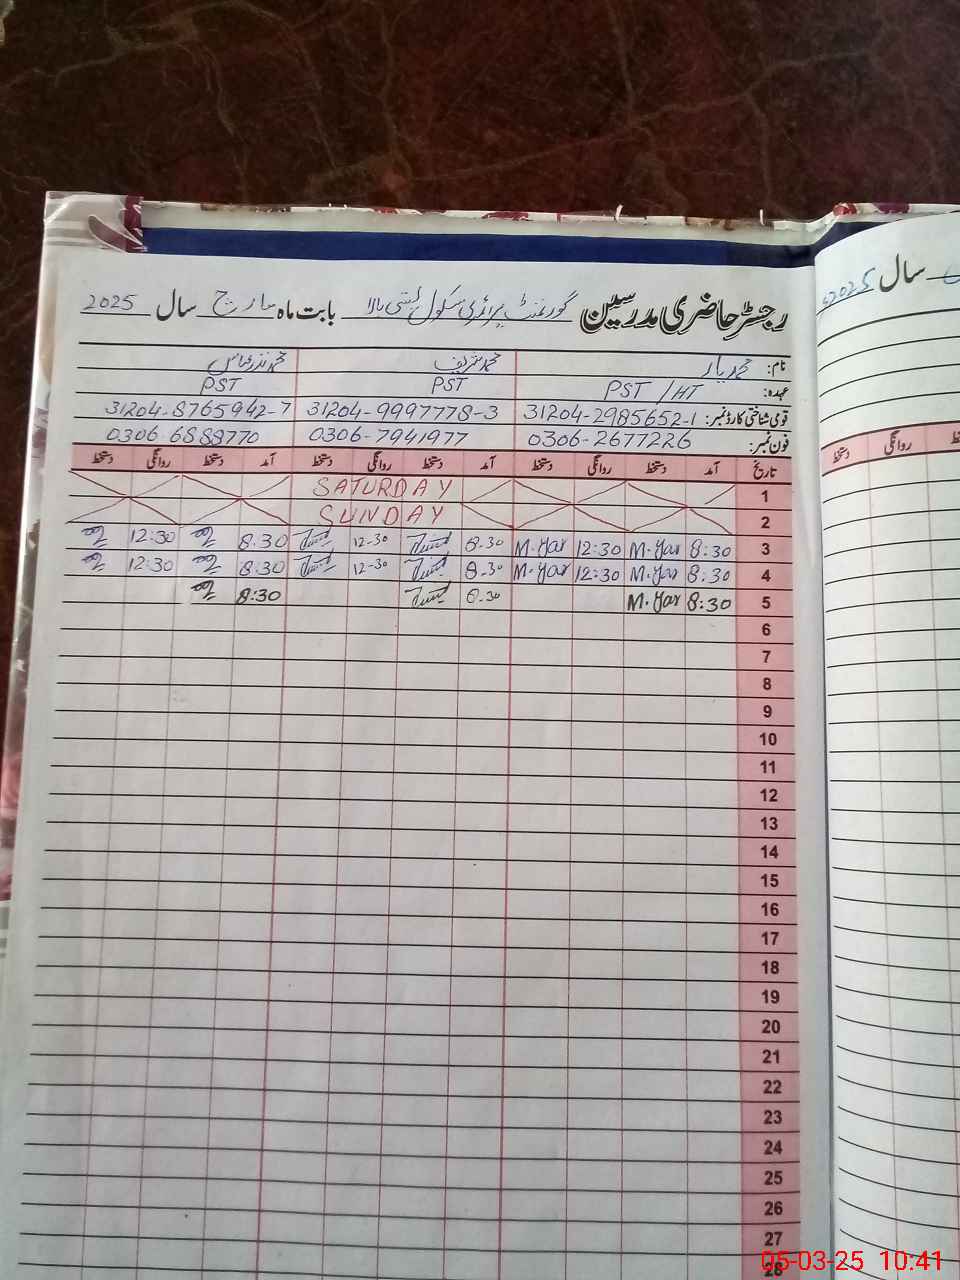 رجسٹر حاضری مدرسین گورنمنٹ پرائمری سکول بستی بالا بابت ماہ مارچ سال 2025
نام: محمد یار محمد شریف محمد نذر عباس
عہدہ: PST / HT PST PST
قومی شناختی کارڈ نمبر: 31204-2985652-1 31204-9997778-3 31204-8765942-7
فون نمبر: 0306-2677226 0306-7941977 0306-6888770
تاریخ آمد دستخط روانگی دستخط آمد دستخط روانگی دستخط آمد دستخط روانگی دستخط
1 SATURDAY
2 SUNDAY
3 8:30 M.Yar 12:30 M.Yar 8.30 12-30 8.30 12:30
4 8:30 M.Yar 12:30 M.Yar 8.30 12-30 8:30 12:30
5 8:30 M.Yar 8.30 8:30
6
7
8
9
10
11
12
13
14
15
16
17
18
19
20
21
22
23
24
25
26
27
28
سال 2025
روانگی دستخط
05-03-25 10:41